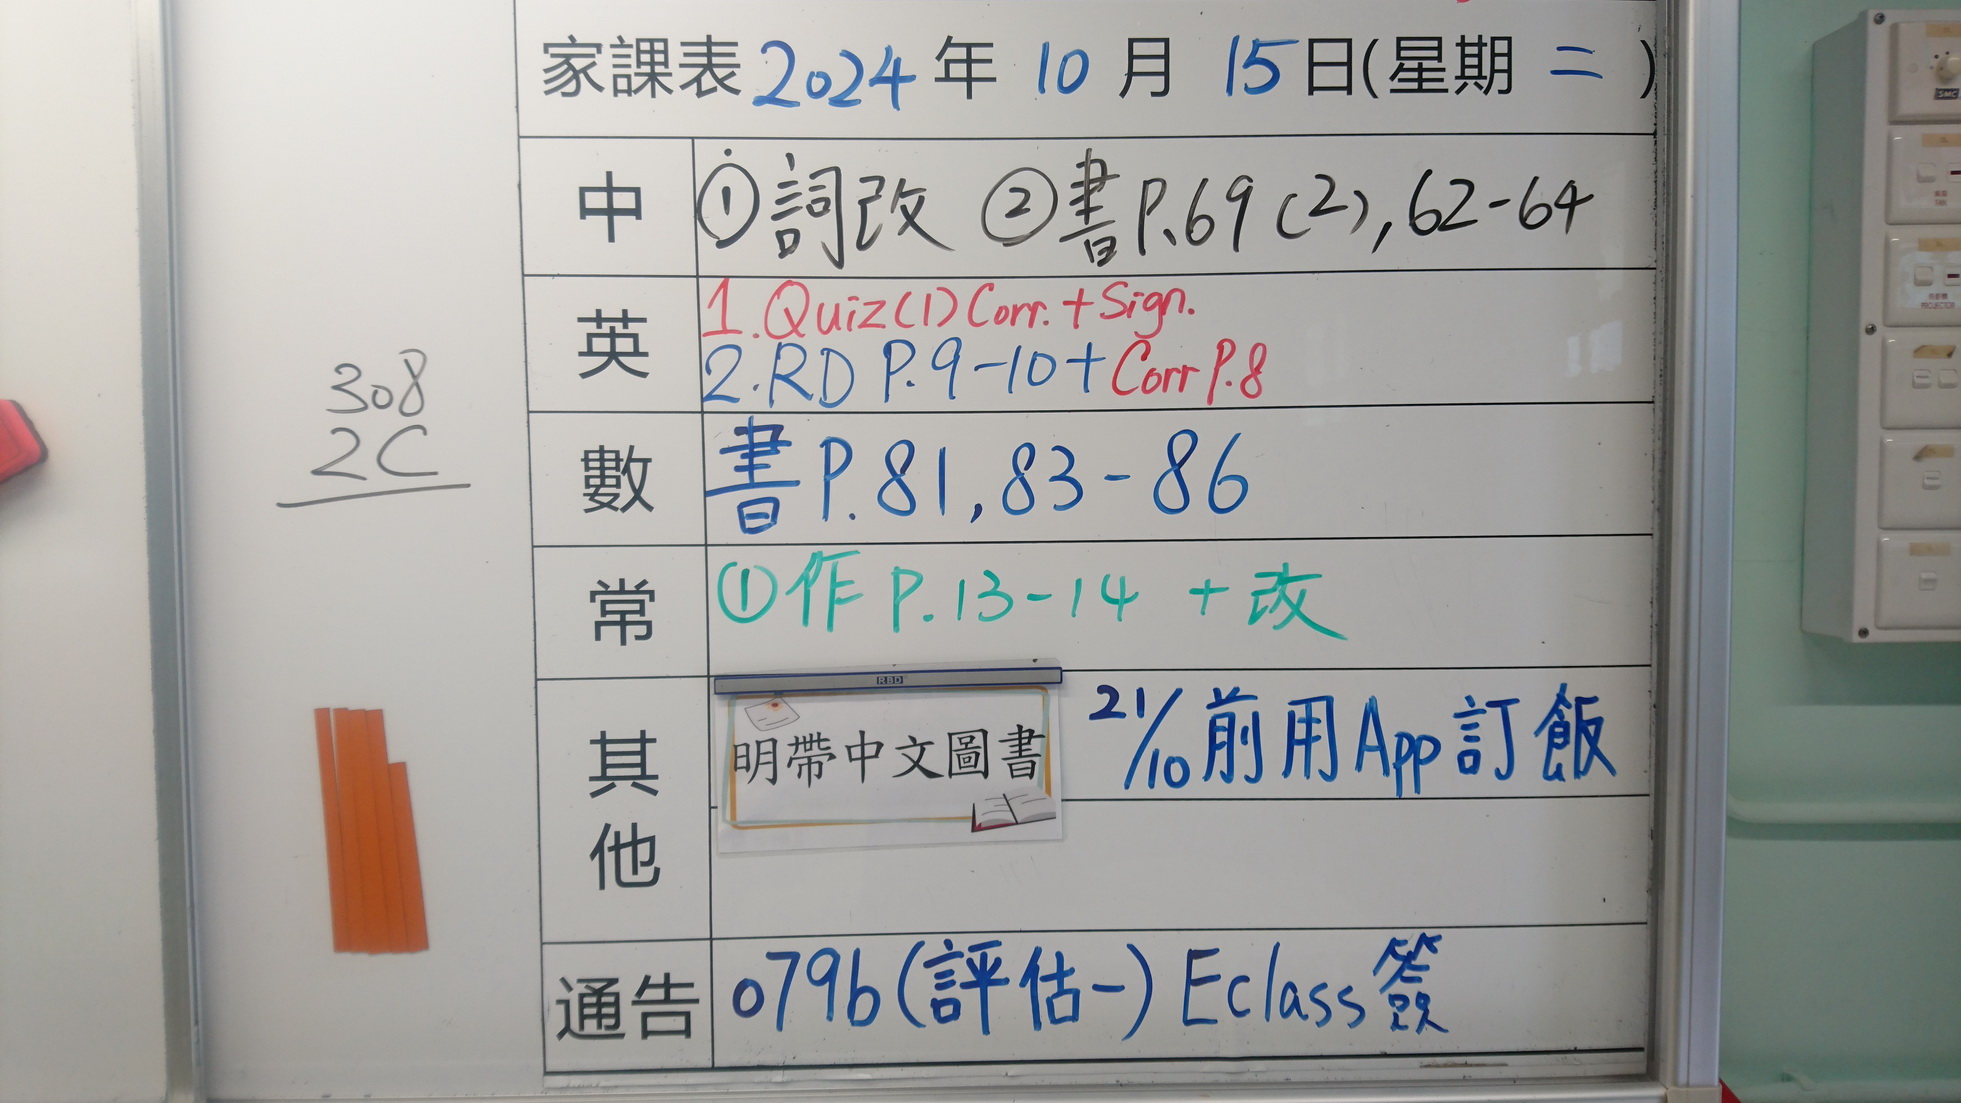 家課表 2024 年 10 月 15 日(星期 二 )
中 ①詞改 ②書P.69(2),62-64
英 1.Quiz(1) Corr.+Sign.
2.RD P.9-10+Corr P.8
308
2C
數 書P.81,83-86
常 ①作 P.13-14 +改
其他
RBD
明帶中文圖書
21/10前用App訂飯
通告 079b(評估一) Eclass簽